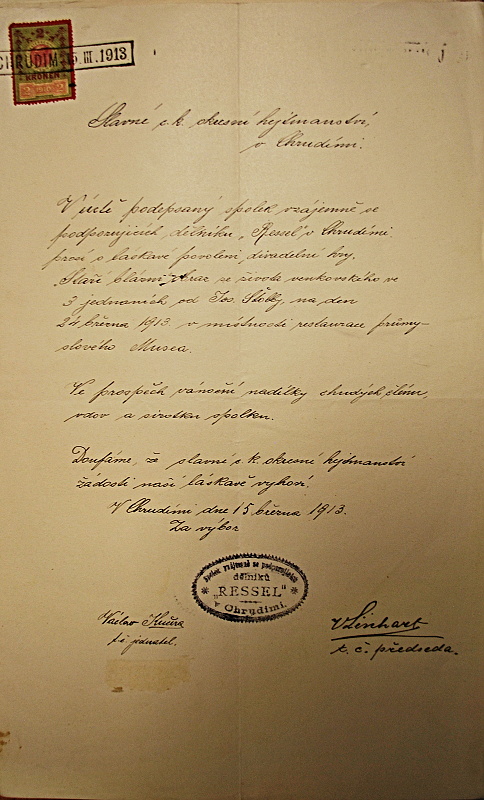 2
KRONEN
CHRUDIM 15.III.1913
Slavné c. k. okresní hejtmanství,
v Chrudimi.
V úctě podepsaný spolek vzájemně se
podporujících dělníků „Ressel" v Chrudimi
prosí o laskavé povolení divadelní hry.
„Staří blázni" obraz ze života venkovského ve
3 jednáních od Jos. Štolby, na den
24 března 1913. v místnosti restaurace průmy-
slového Musea.
Ve prospěch vánoční nadílky chudých členů,
vdov a sirotků spolku.
Doufáme, že slavné c. k. okresní hejtmanství
žádosti naší laskavě vyhoví.
V Chrudimi dne 15 března 1913.
Za výbor
Spolek vzájemně se podporujících
dělníků
„RESSEL"
v Chrudimi.
Václav Kučera
t. č. jednatel.
V Linhart
t. č. předseda.